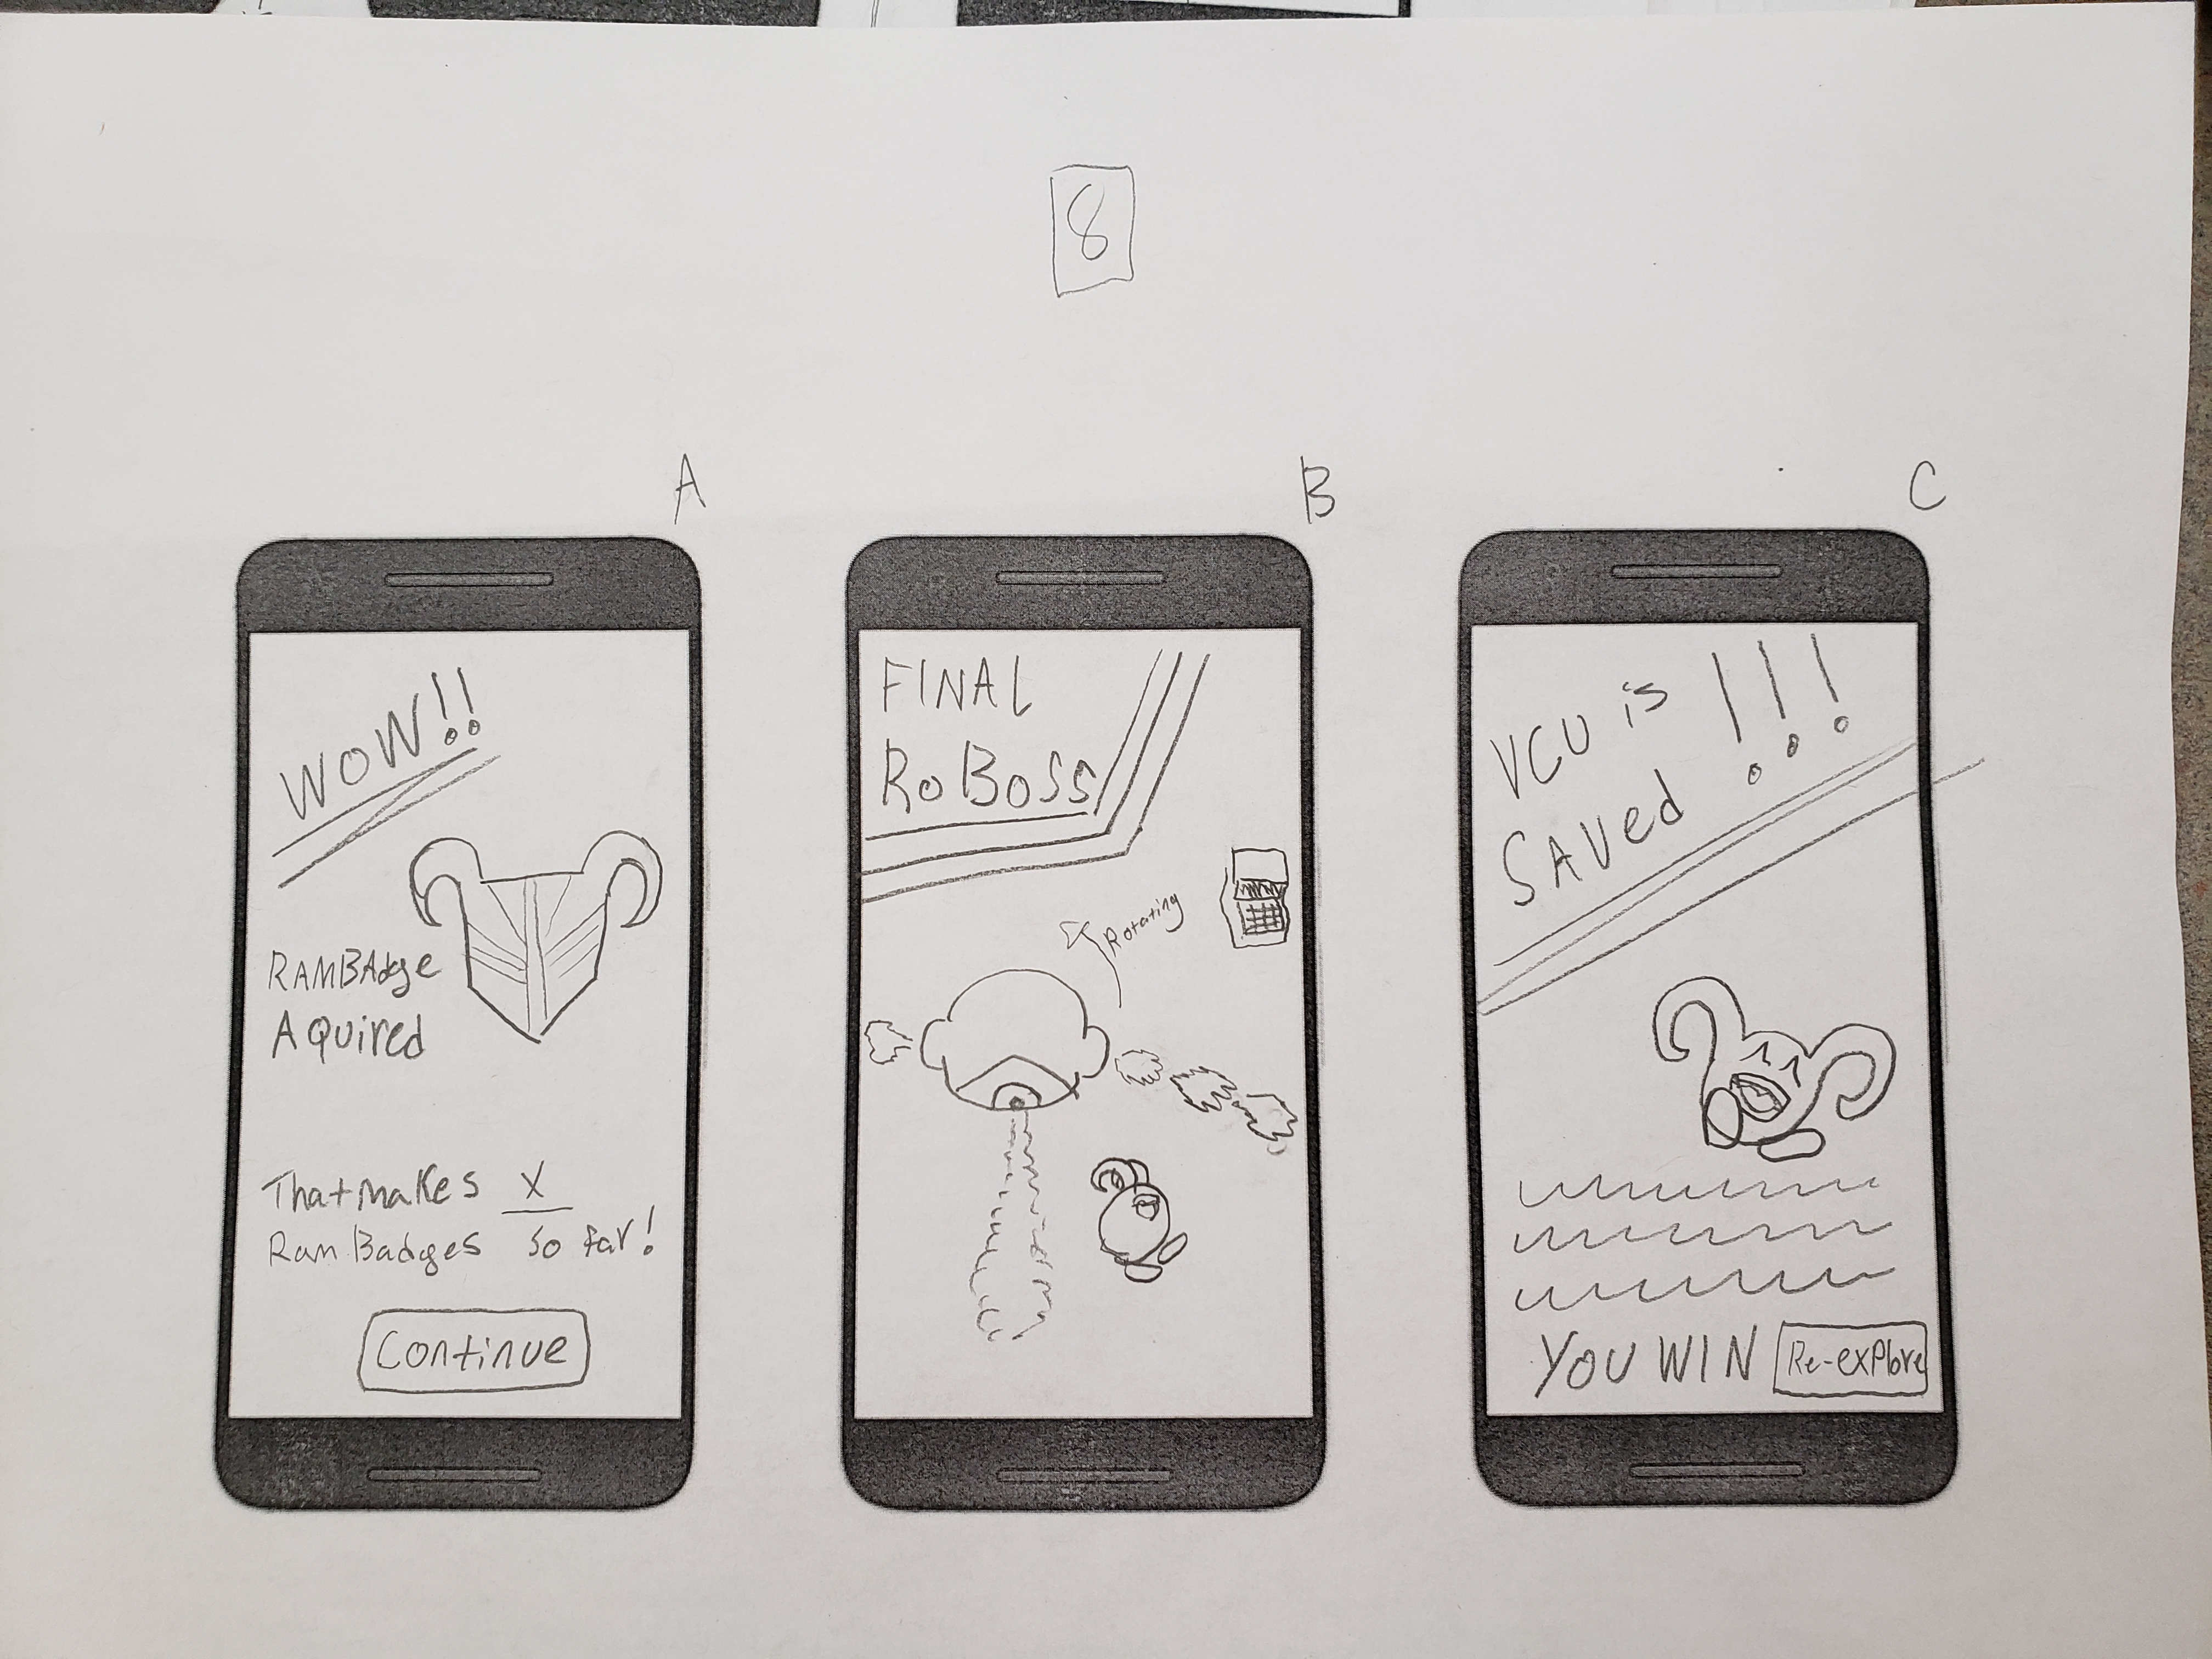 8
A
WOW!!
RAMBAdge
Aquired
That makes X
Ram Badges so far!
Continue
B
FINAL
RoBoss
Rotating
C
VCU is
SAVed !!!
YOU WIN
Re-explore